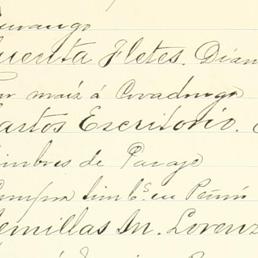 Durango
Cuenta Fletes. Dian
Por maíz á Covadonga
Gastos Escritorio.
Timbres de Pasaje
Compra timbs. en Peñón
Semillas Sn. Lorenz